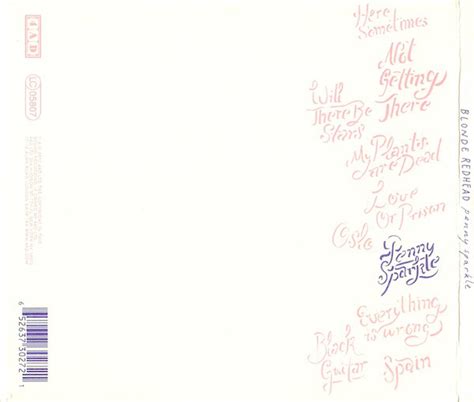 4AD
LC 05807
Here
Sometimes
Not
Getting
There
Will
There Be
Stars
My Plants
are Dead
Love
Or Prison
Oslo
Penny
Sparkle
Everything
is wrong
Black
Guitar
Spain
BLONDE REDHEAD penny sparkle
6 52637 30272 1